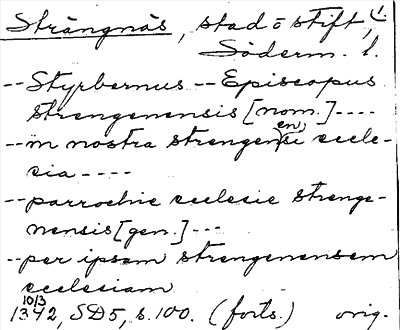 Strängnäs, stad o stift, 1.
Söderm. l.
--Styrbernus--Episcopus
strengenensis [nom.]----
--in nostra strengensi eccle-
en
cia----
--parrochie ecclesie strenge-
nensis [gen.]---
--per ipsam strengenensem
ecclesiam
10/3
1342, SD5, s.100. (forts.) orig.